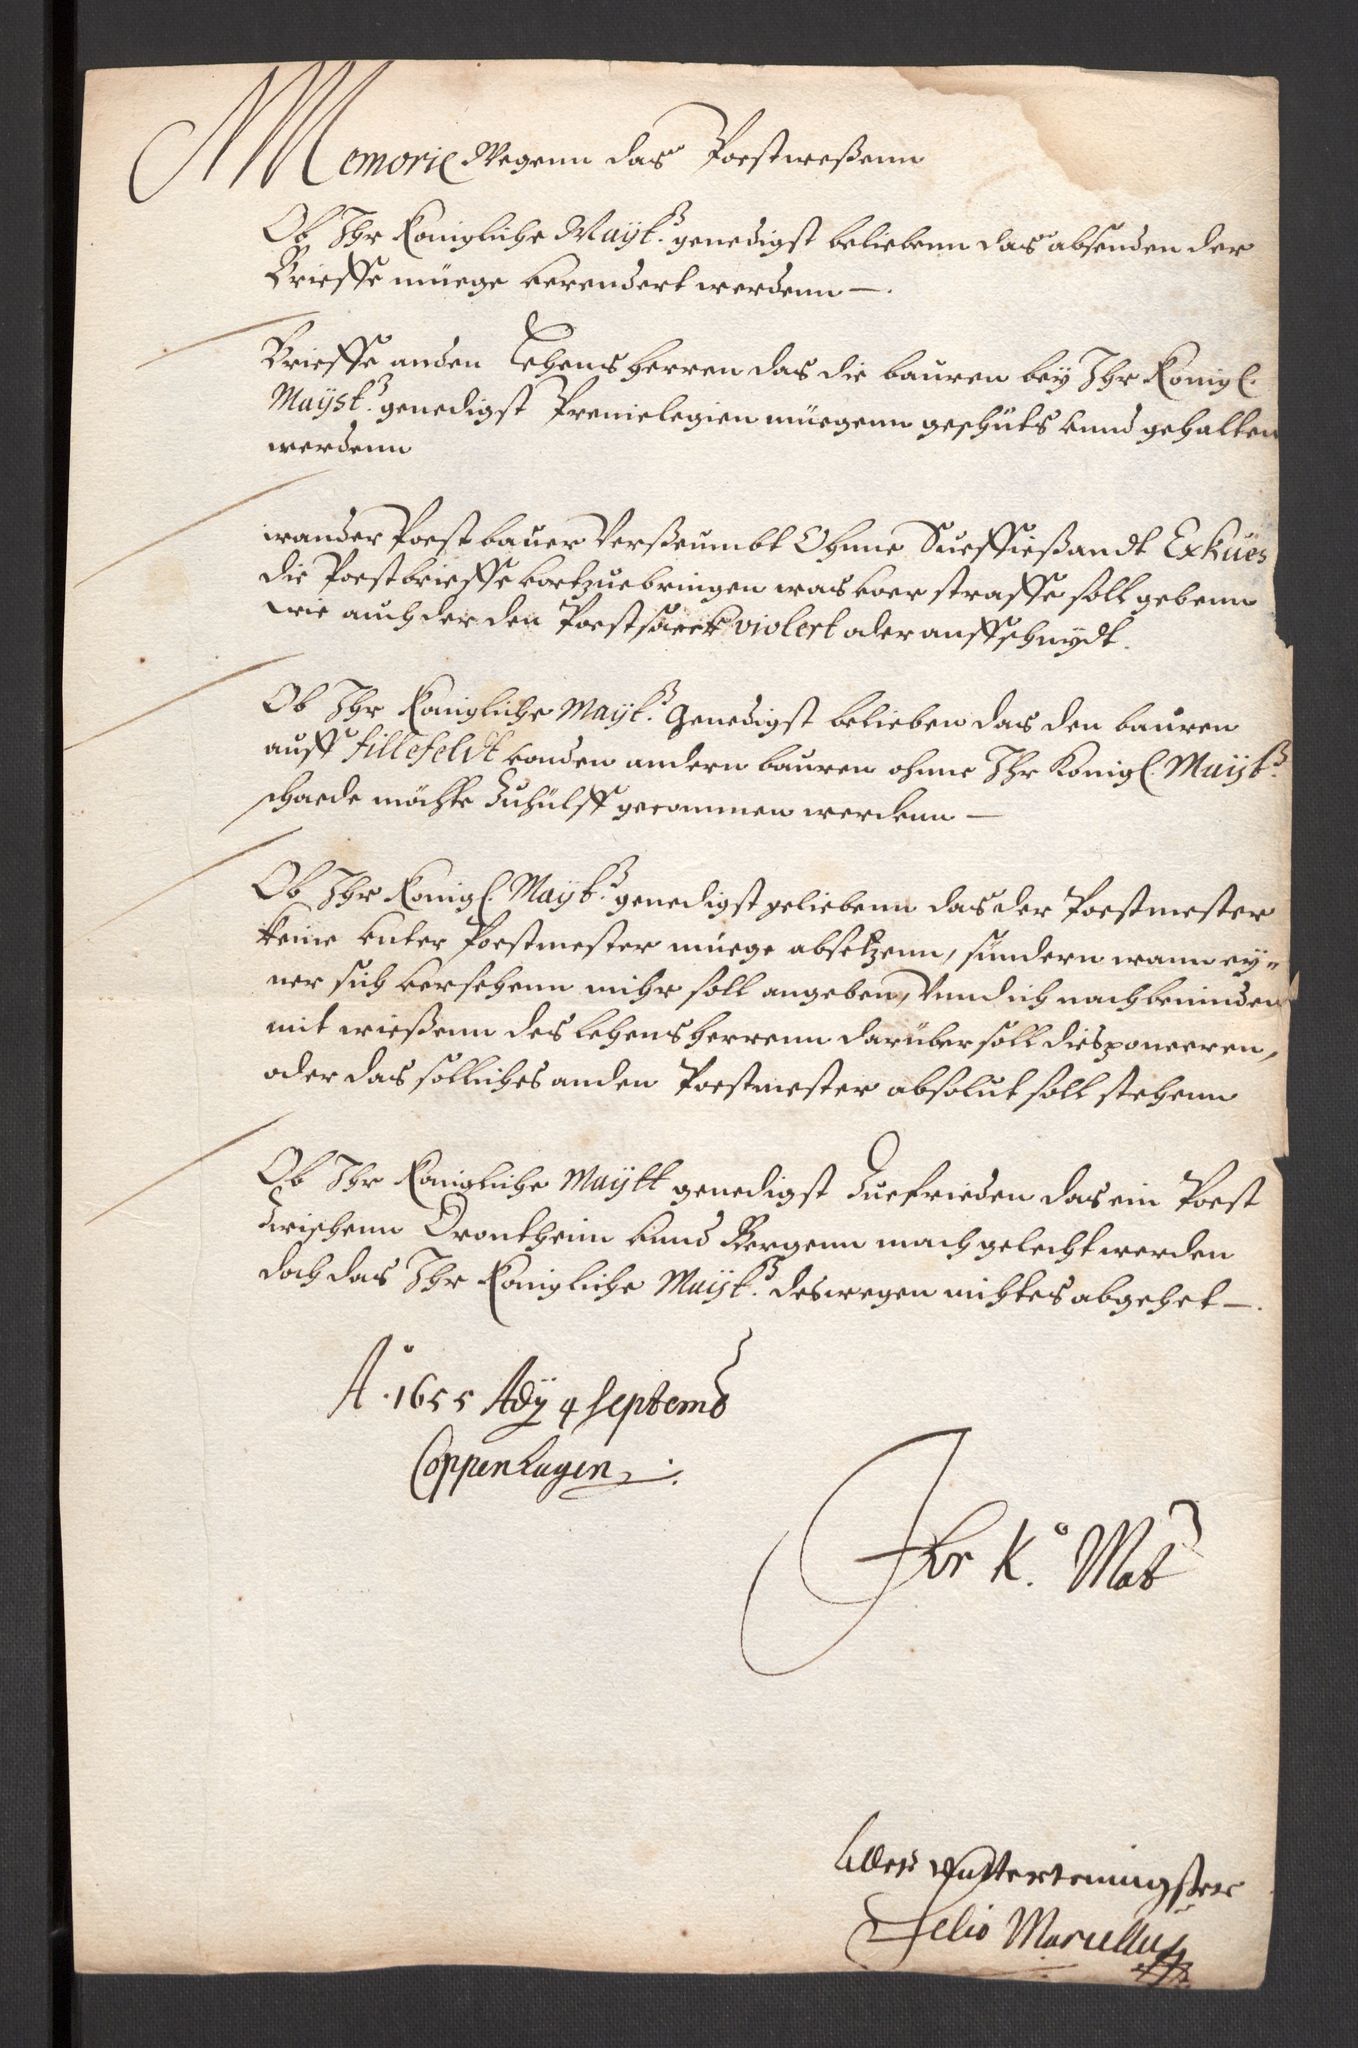 Memorie Wegenn das Poestweßenn
Ob Ihr Königliche Maÿt. genedigst beliebenn das absenden der
Brieffe müege verendert werdenn —.
Brieffe anden Lehens herren das die bauren bey Ihr Königl.
Maÿst. genedigst Previelegien müegenn geschüts unnd gehalten
werdenn
wander Poest bauer Verßeumbt Ohnne Sueffießandt Exküës
die Poestbrieffe fortzuebringen was voer straffe soll gebenn
wie auch der den Poestsaeck violert oder auffschnydt.
Ob Ihr Königliche Maÿt. Genedigst belieben das den bauren
auff fillefeldt vonden andern bauren ohnne Ihr Königl. Maÿst.
schaede möchte Zuhülff gecommen werdenn —
Ob Ihr Königl. Maÿt. genedigst geliebenn das der Poestmester
keine unter Poestmester müege absetzenn, sündern wann ey=
ner sich versehenn mihr soll angeben, Unnd ich nach bevinden
mit wießenn des Lehens herrenn darüber soll diesponeeren,
oder das solliches anden Poestmester absolut soll stehenn
Ob Ihr Königliche Maÿtt genedigst Zuefrieden das ein Poest
Zwischenn Drontheim unnd Bergenn mach gelecht werden
doch das Ihr Königliche Maÿst. deswegen nichtes abgehet —.
Ao. 1655 Ady 4 Septemb
Coppenhagen
Ihr K. Mat
Aller Untterteninigster
Selio Marcellus